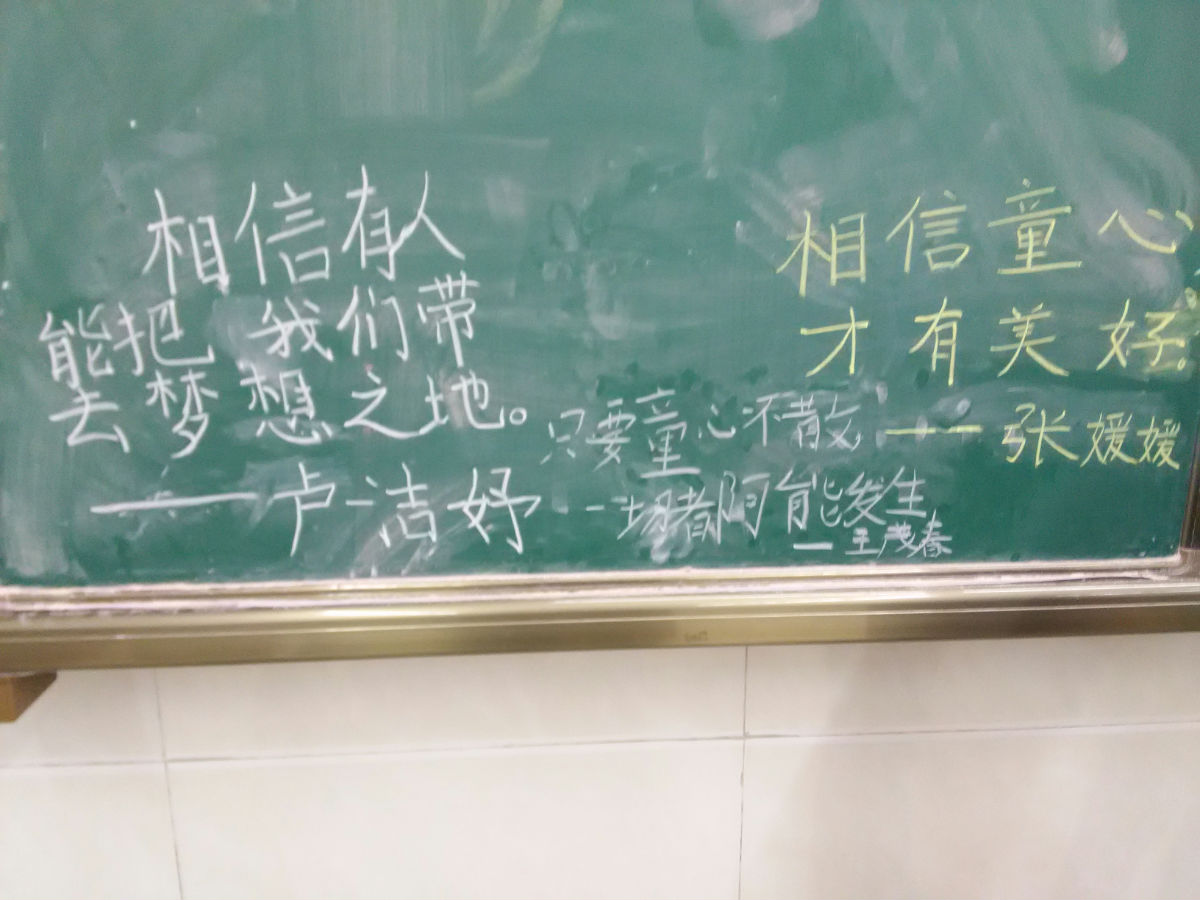 相信有人
能把我们带
去梦想之地。
——卢洁妤
只要童心不散,
一切都阿能发生
—王茂春
相信童心,
才有美好。
——张媛媛